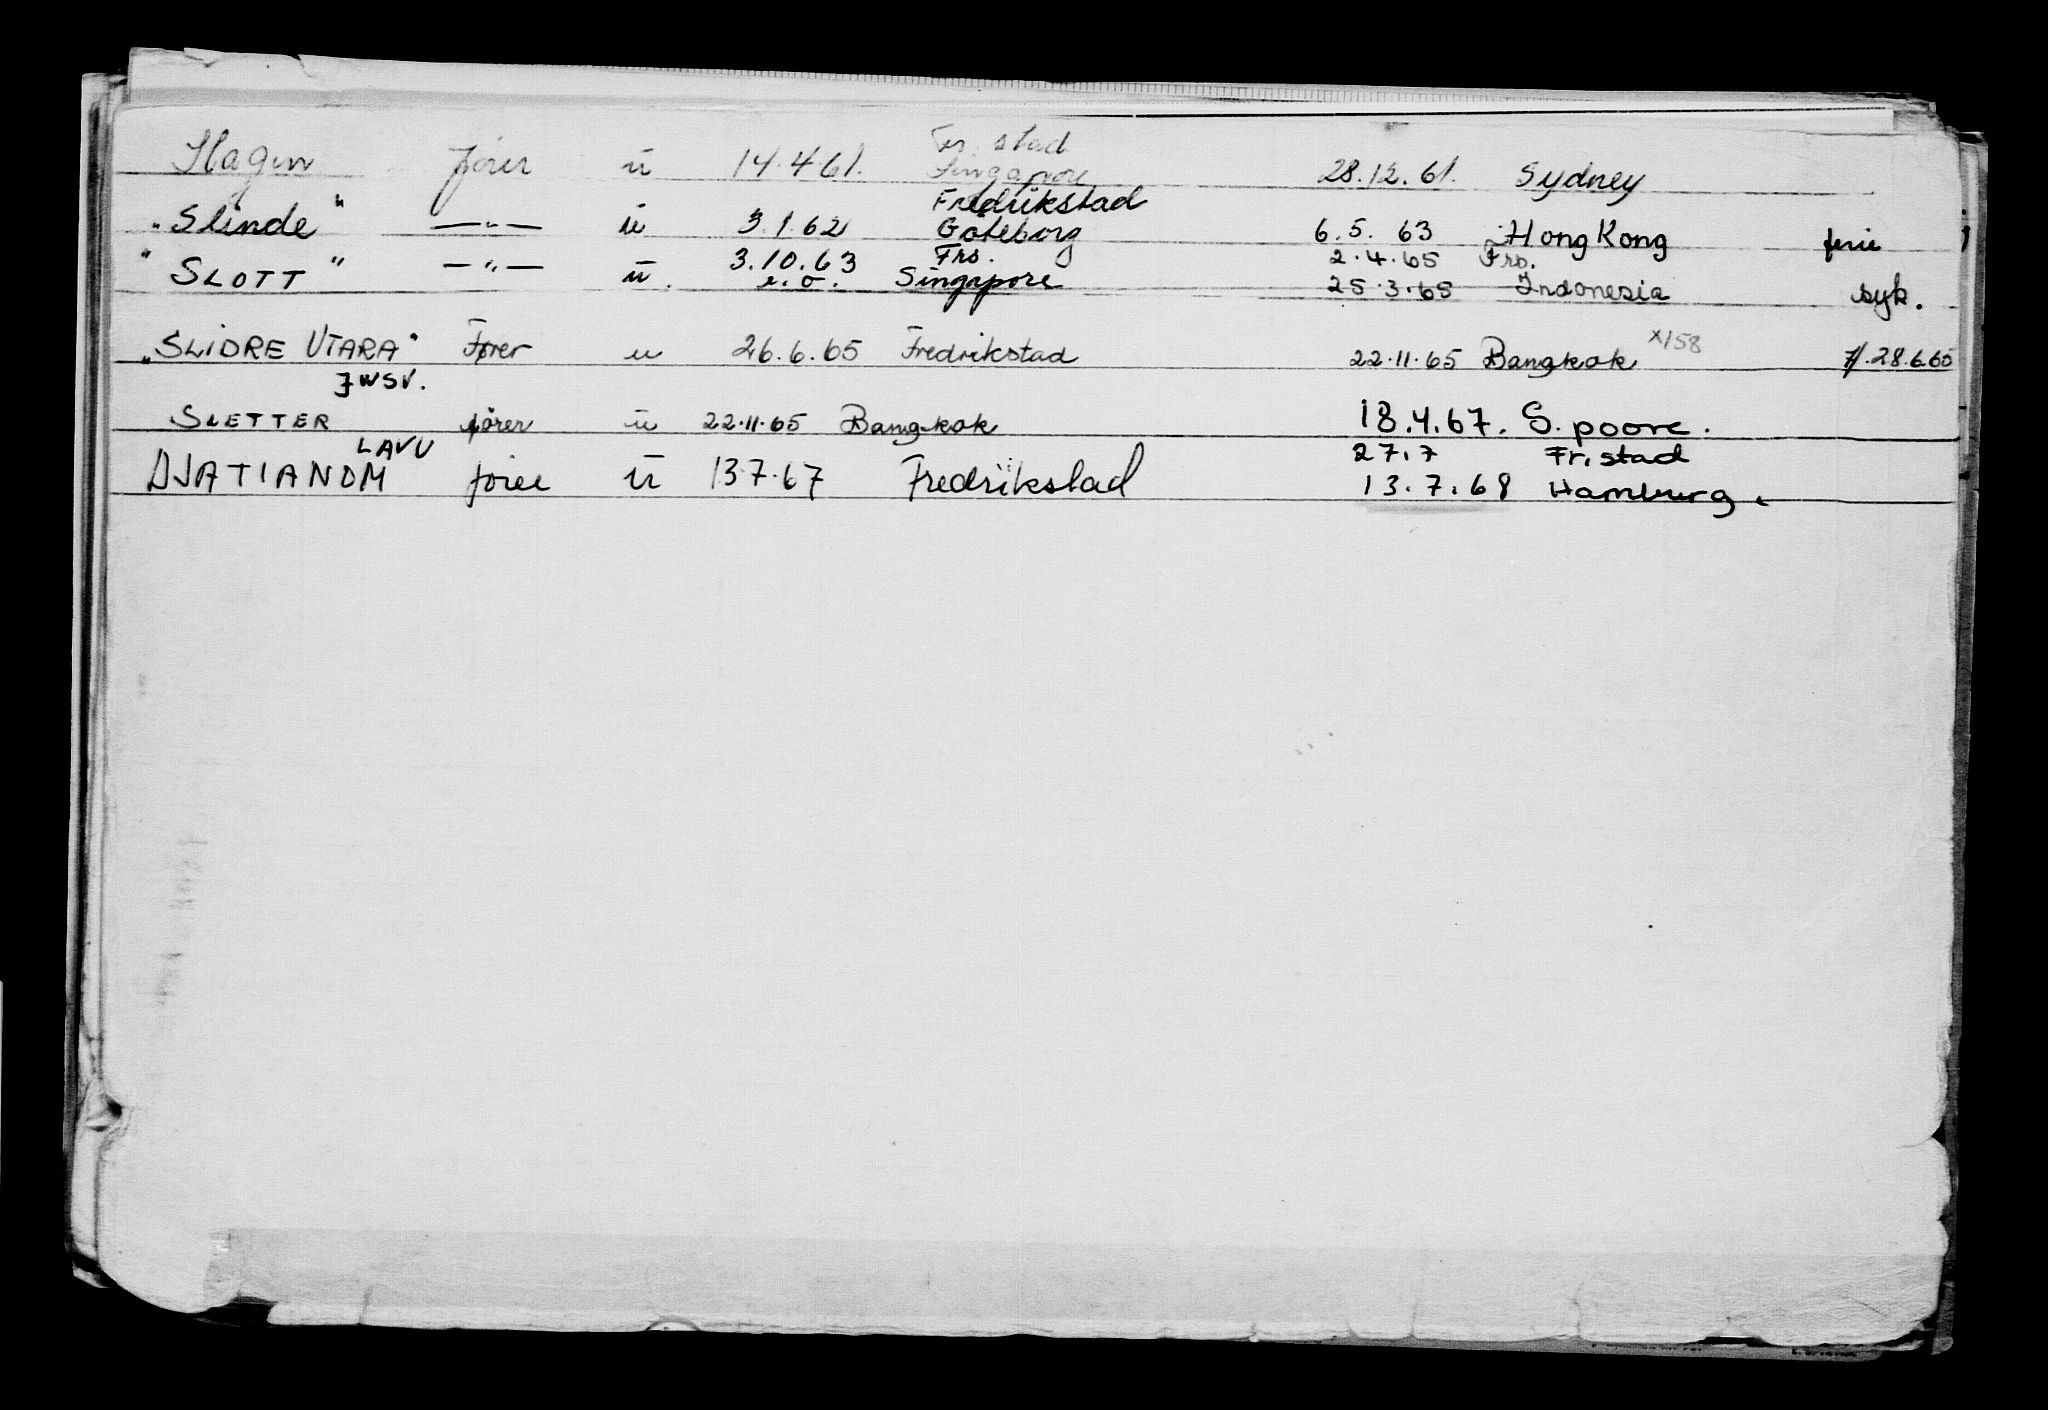 Slagen fører u 14.4.61. Fr. stad Singapore 28.12.61. Sydney
"Slinde" —"— u 3.1.62 Fredrikstad Göteborg 6.5.63 Hong Kong ferie
"SLOTT" —"— u. 3.10.63 Frs. 2.4.65 Frs.
e.o. Singapore 25.3.65 Indonesia syk.
"SLIDRE UTARA" Fører u 26.6.65 Fredrikstad 22.11.65 Bangkok x/158 28.6.65
JWSV.
SLETTER fører u 22.11.65 Bangkok 18.4.67. S.poore.
LAVU 27.7 Fr.stad
DJATIANOM fører u 13.7.67 Fredrikstad 13.7.68 Hamburg.